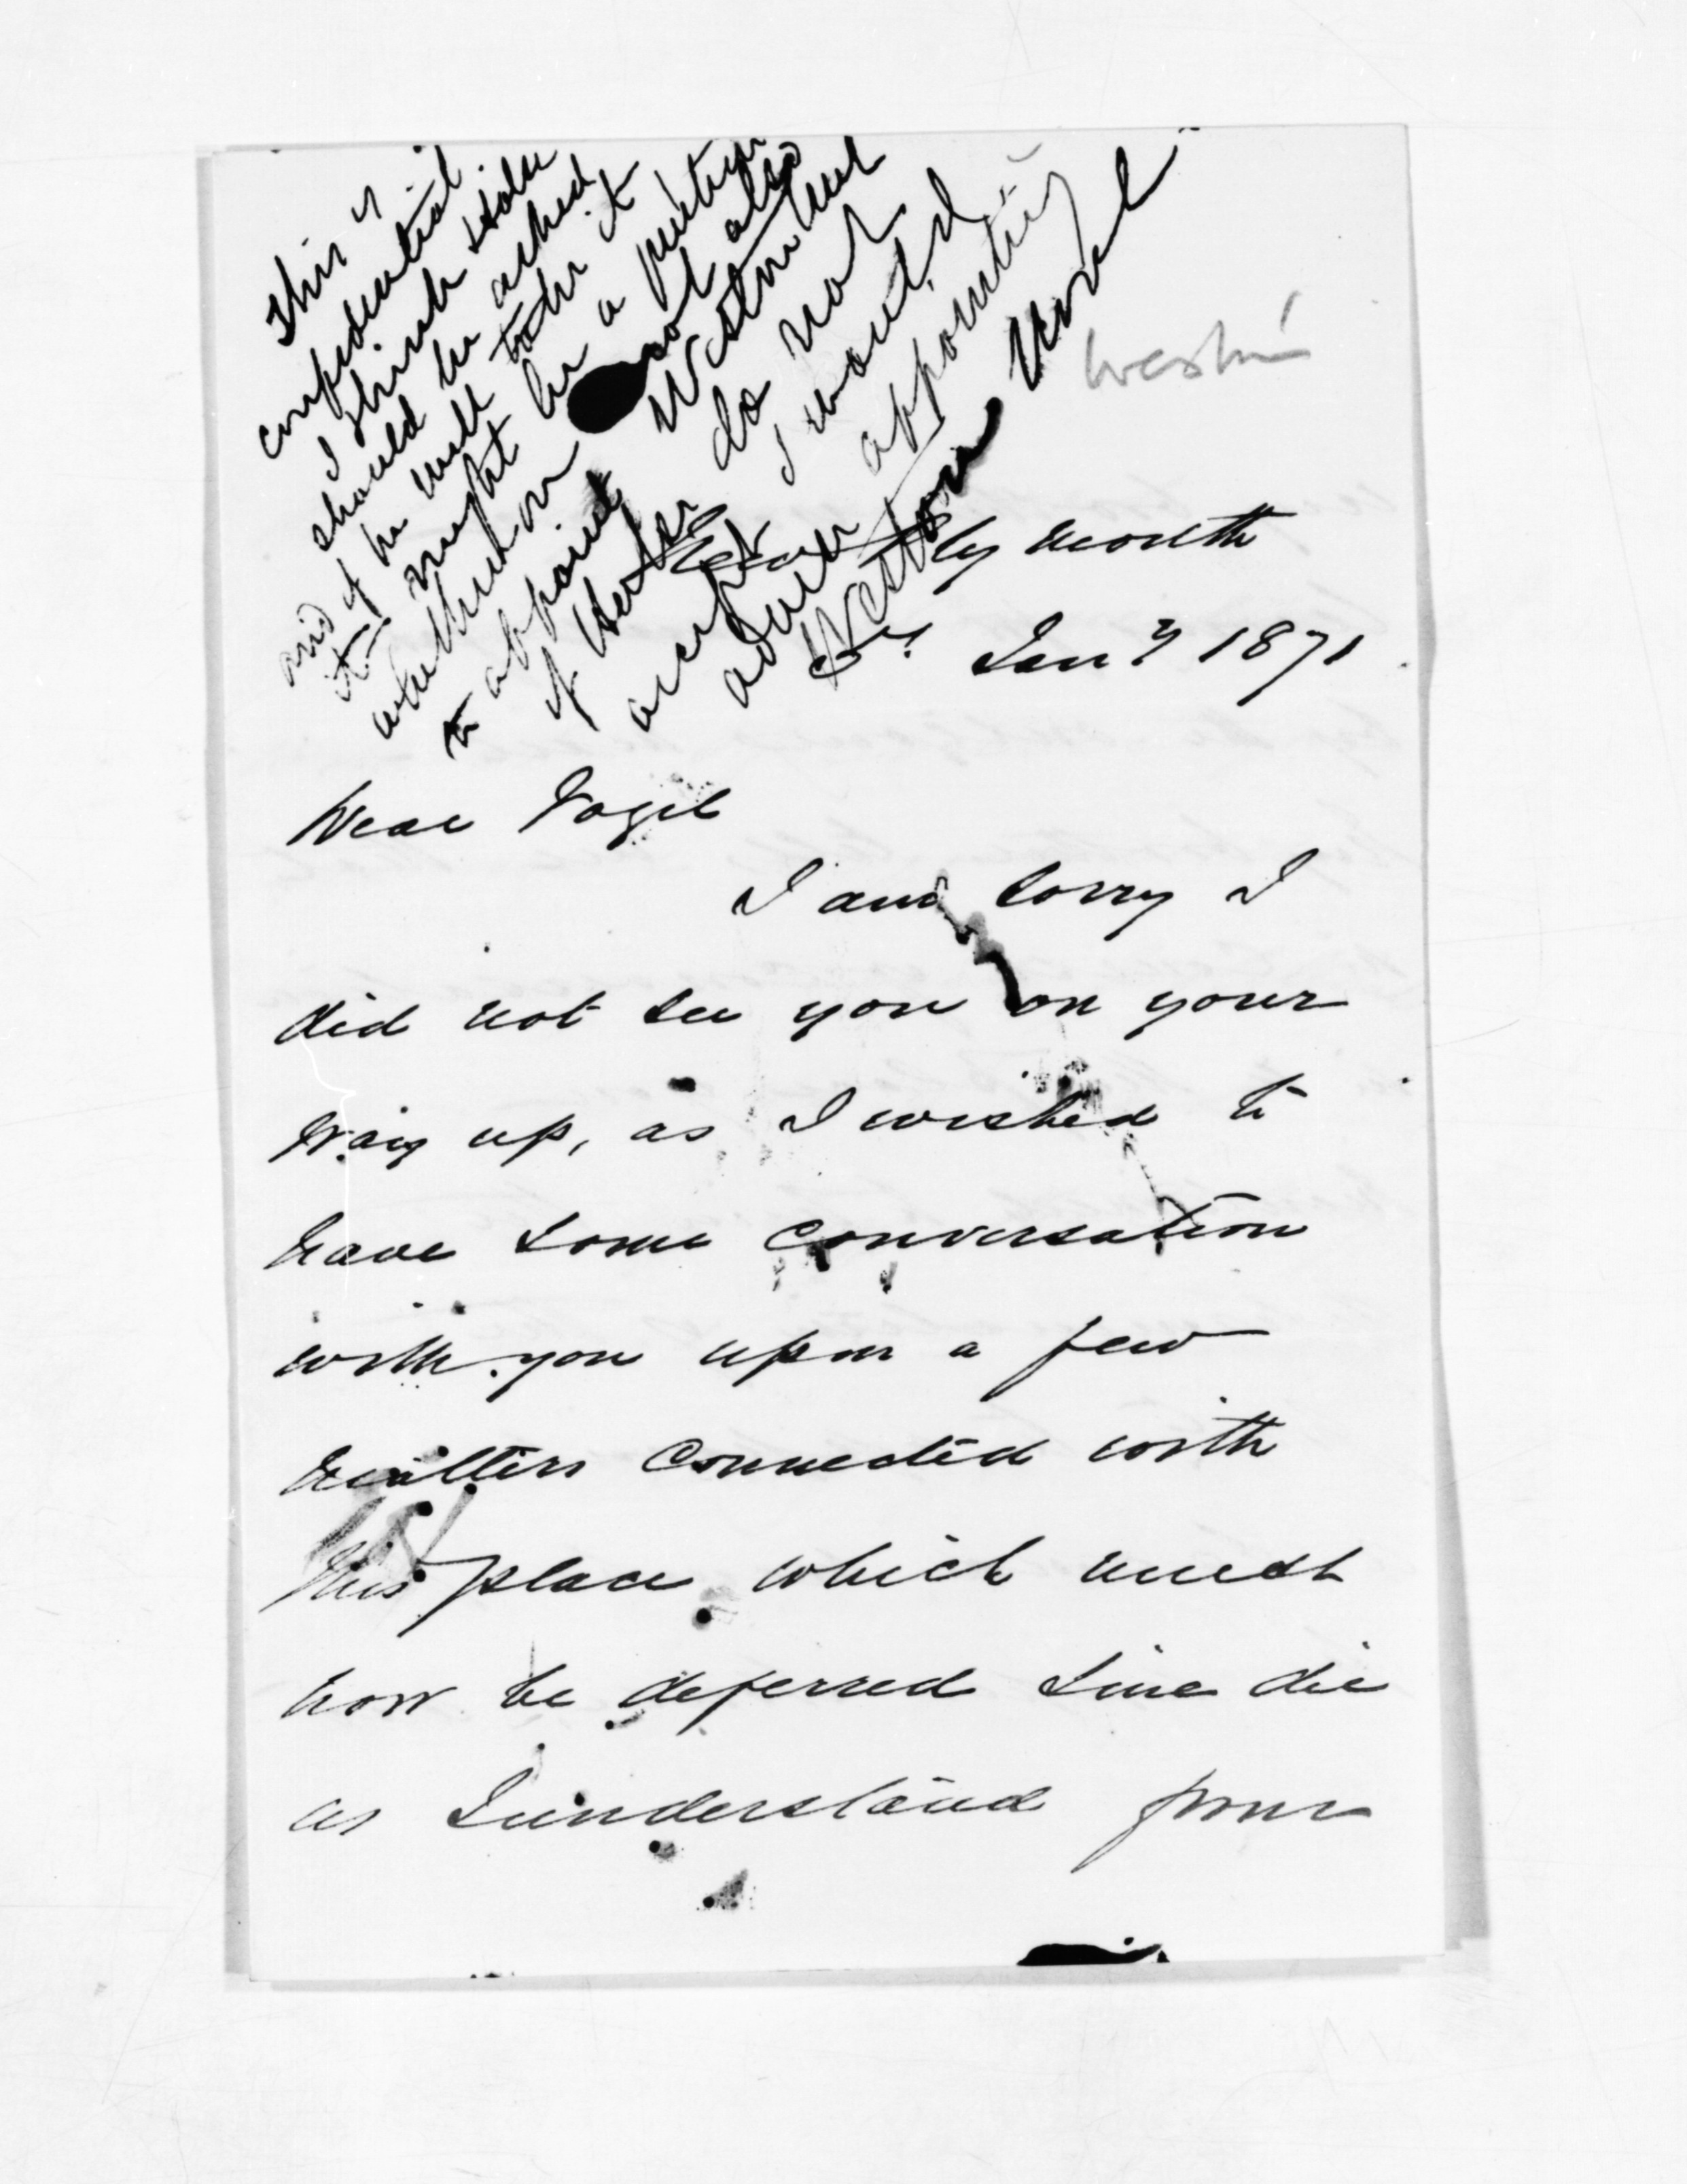 This is
confidential
I think Hobu
should be asked
and if he will take it
it might be a question
whether or not also
to appoint Westrup but
if Herber do not
accept I would
advise appointing
Weston
Vogel
New Plymouth
Jany 1871
Dear Vogel
I am sorry I
did not see you on your
way up, as I wished to
have some conversation
with you upon a few
matters connected with
this place which must
now be deferred sine die
as I understand from